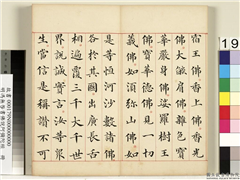 宿王佛香上佛香光
佛大燄肩佛雜色寶
華嚴身佛娑羅樹王
佛寶華德佛見一切
義佛如須彌山佛如
是等恒河沙數諸佛
各於其國出廣長舌
相遍覆三千大千世
界說誠實言汝等眾
生當信是稱讚不可
19